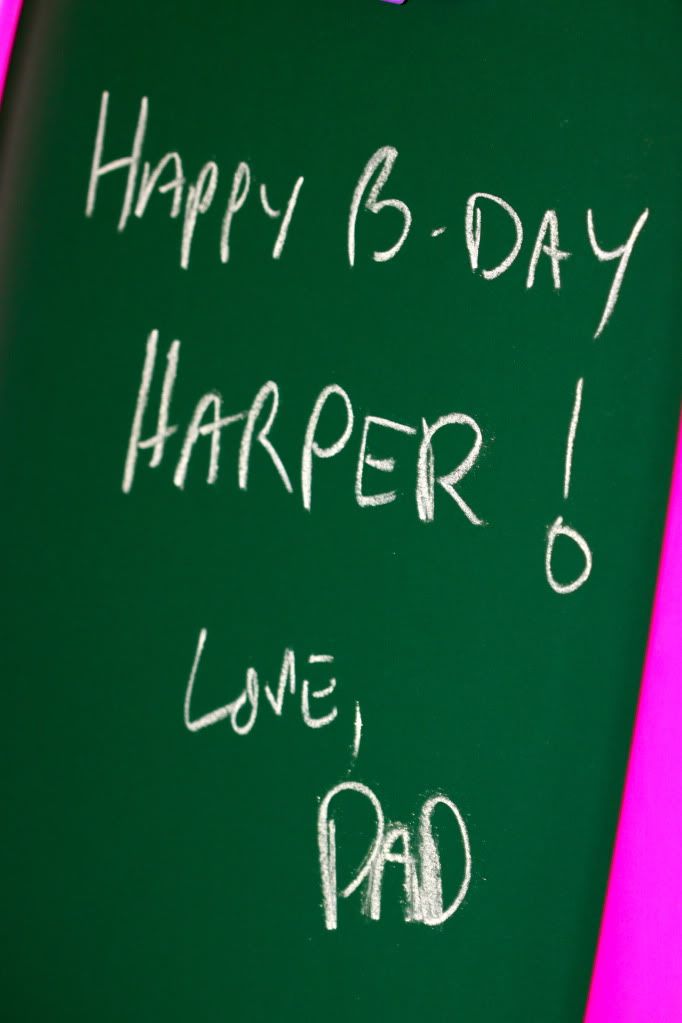 HAPPY B-DAY
HARPER!
LOVE,
DAD